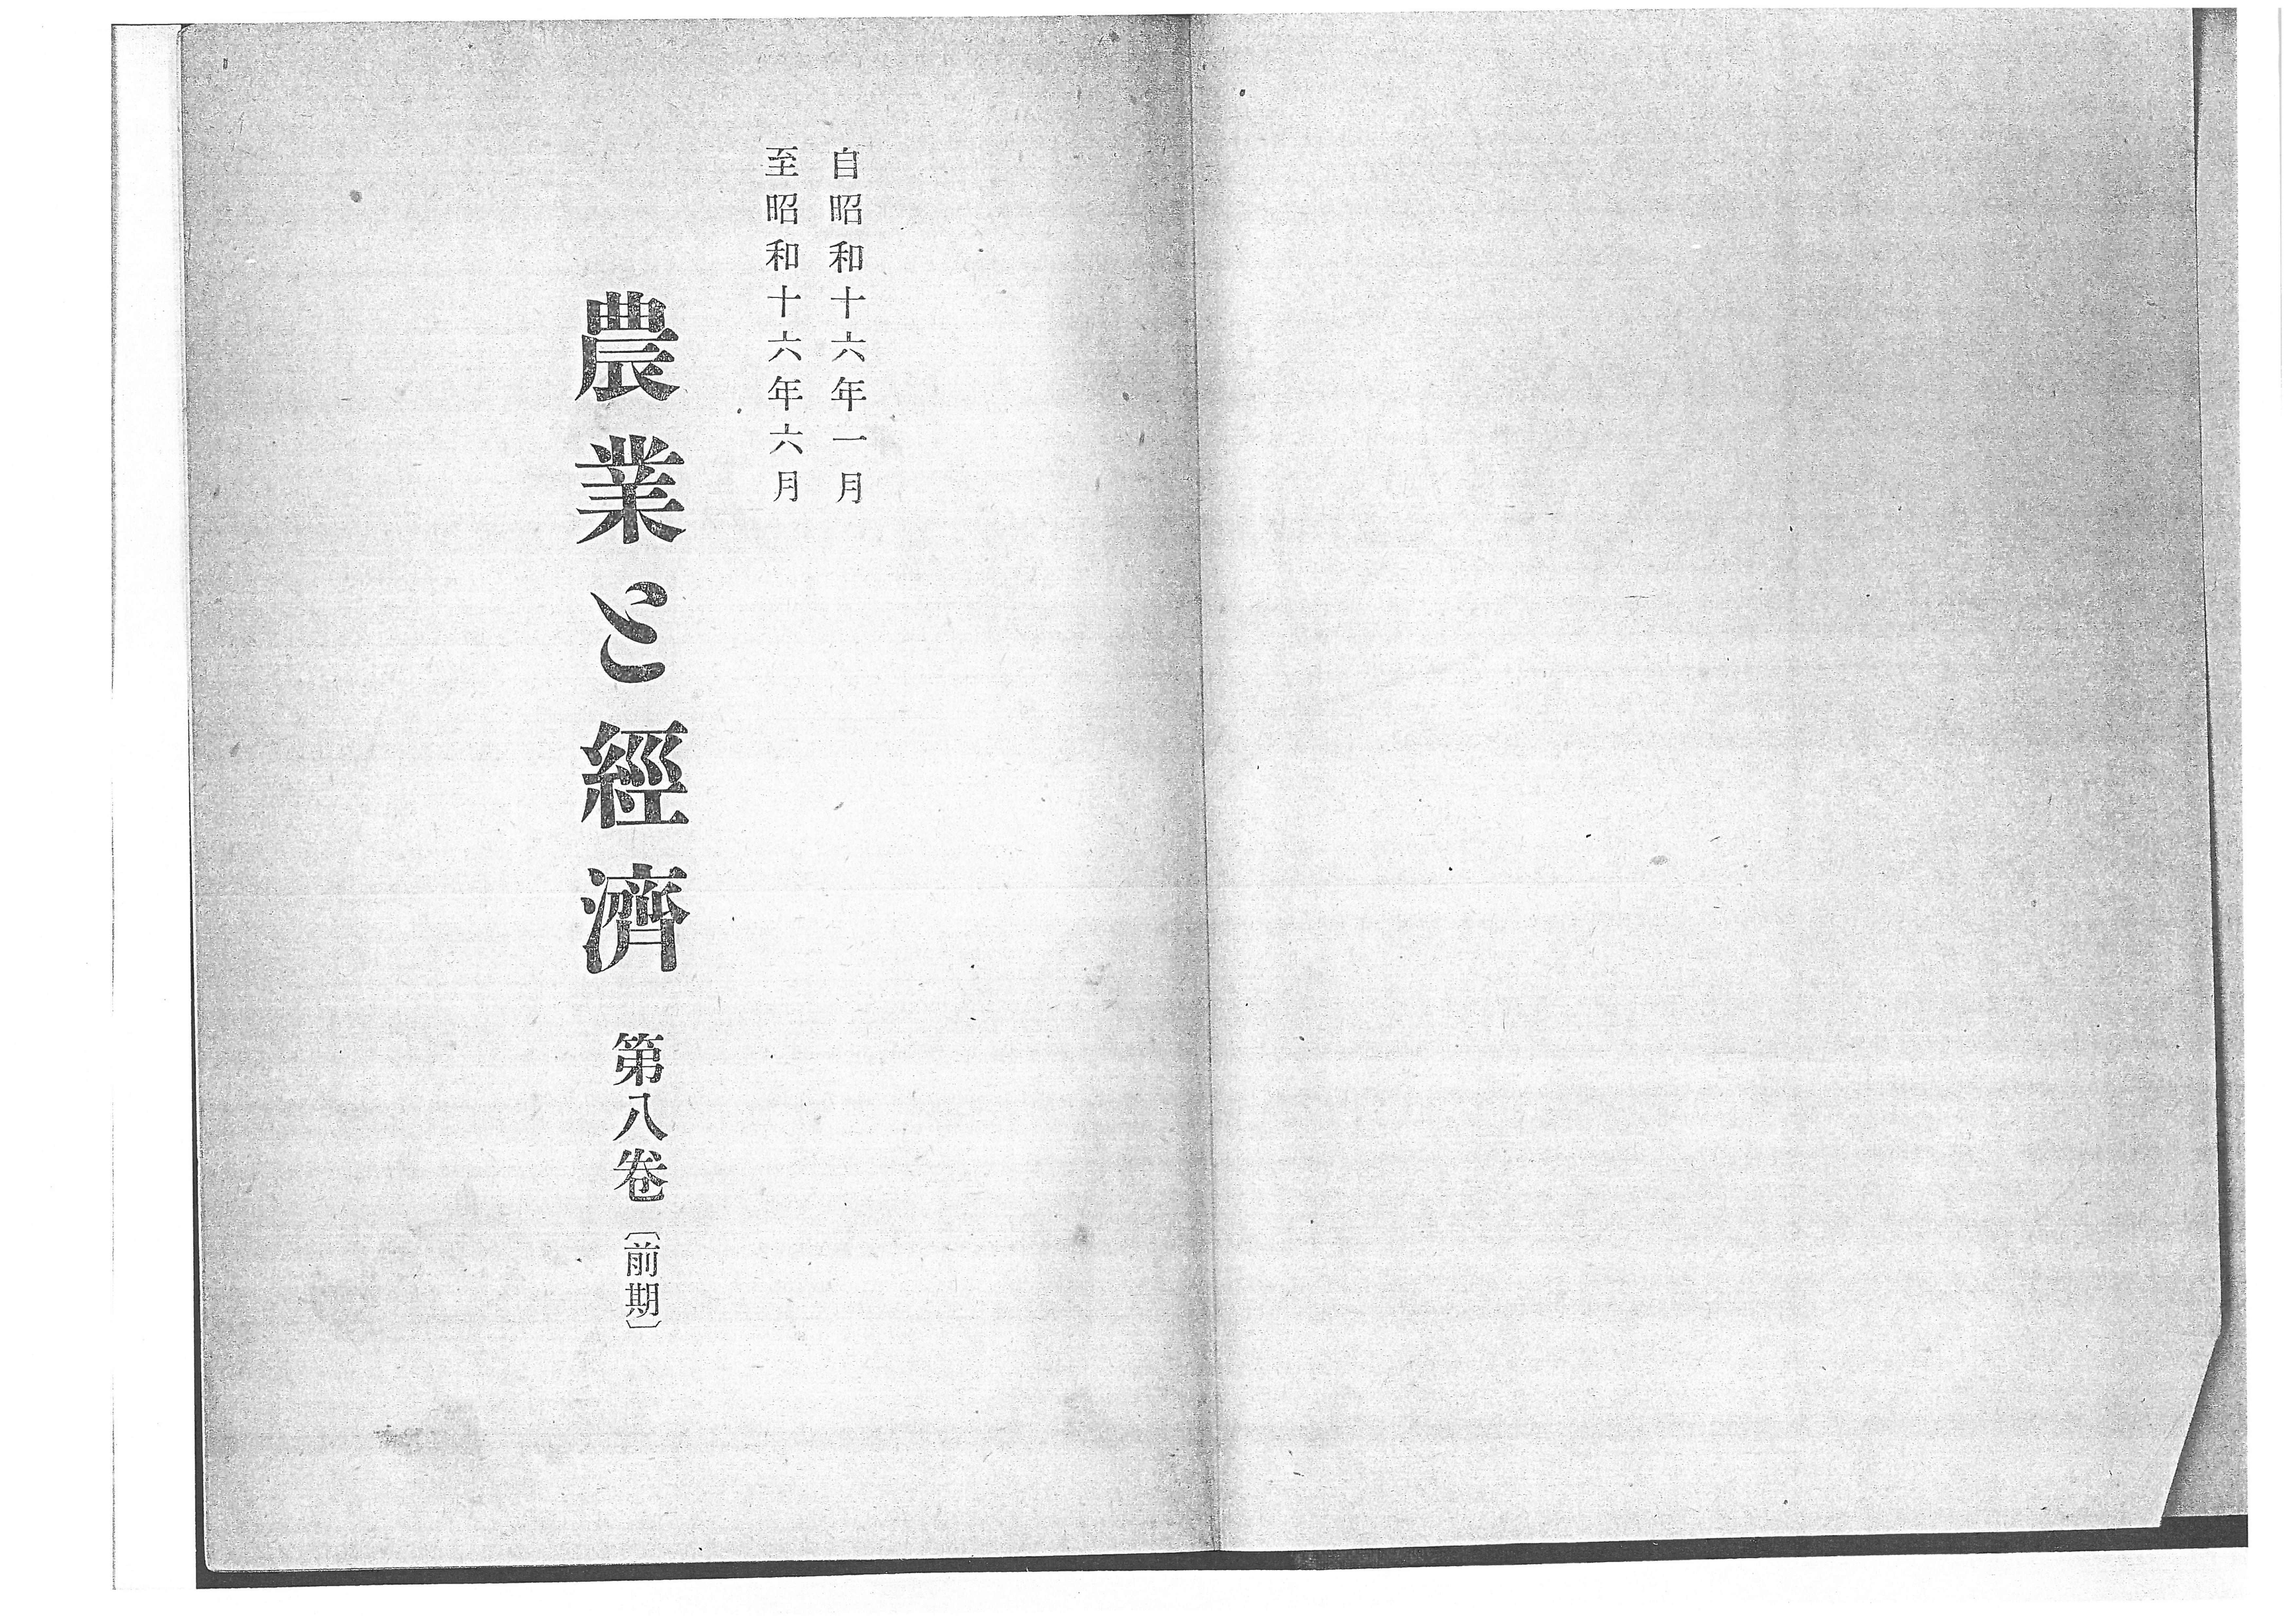 自昭和十六年一月
至昭和十六年六月
農業と經濟 第八卷〔前期〕